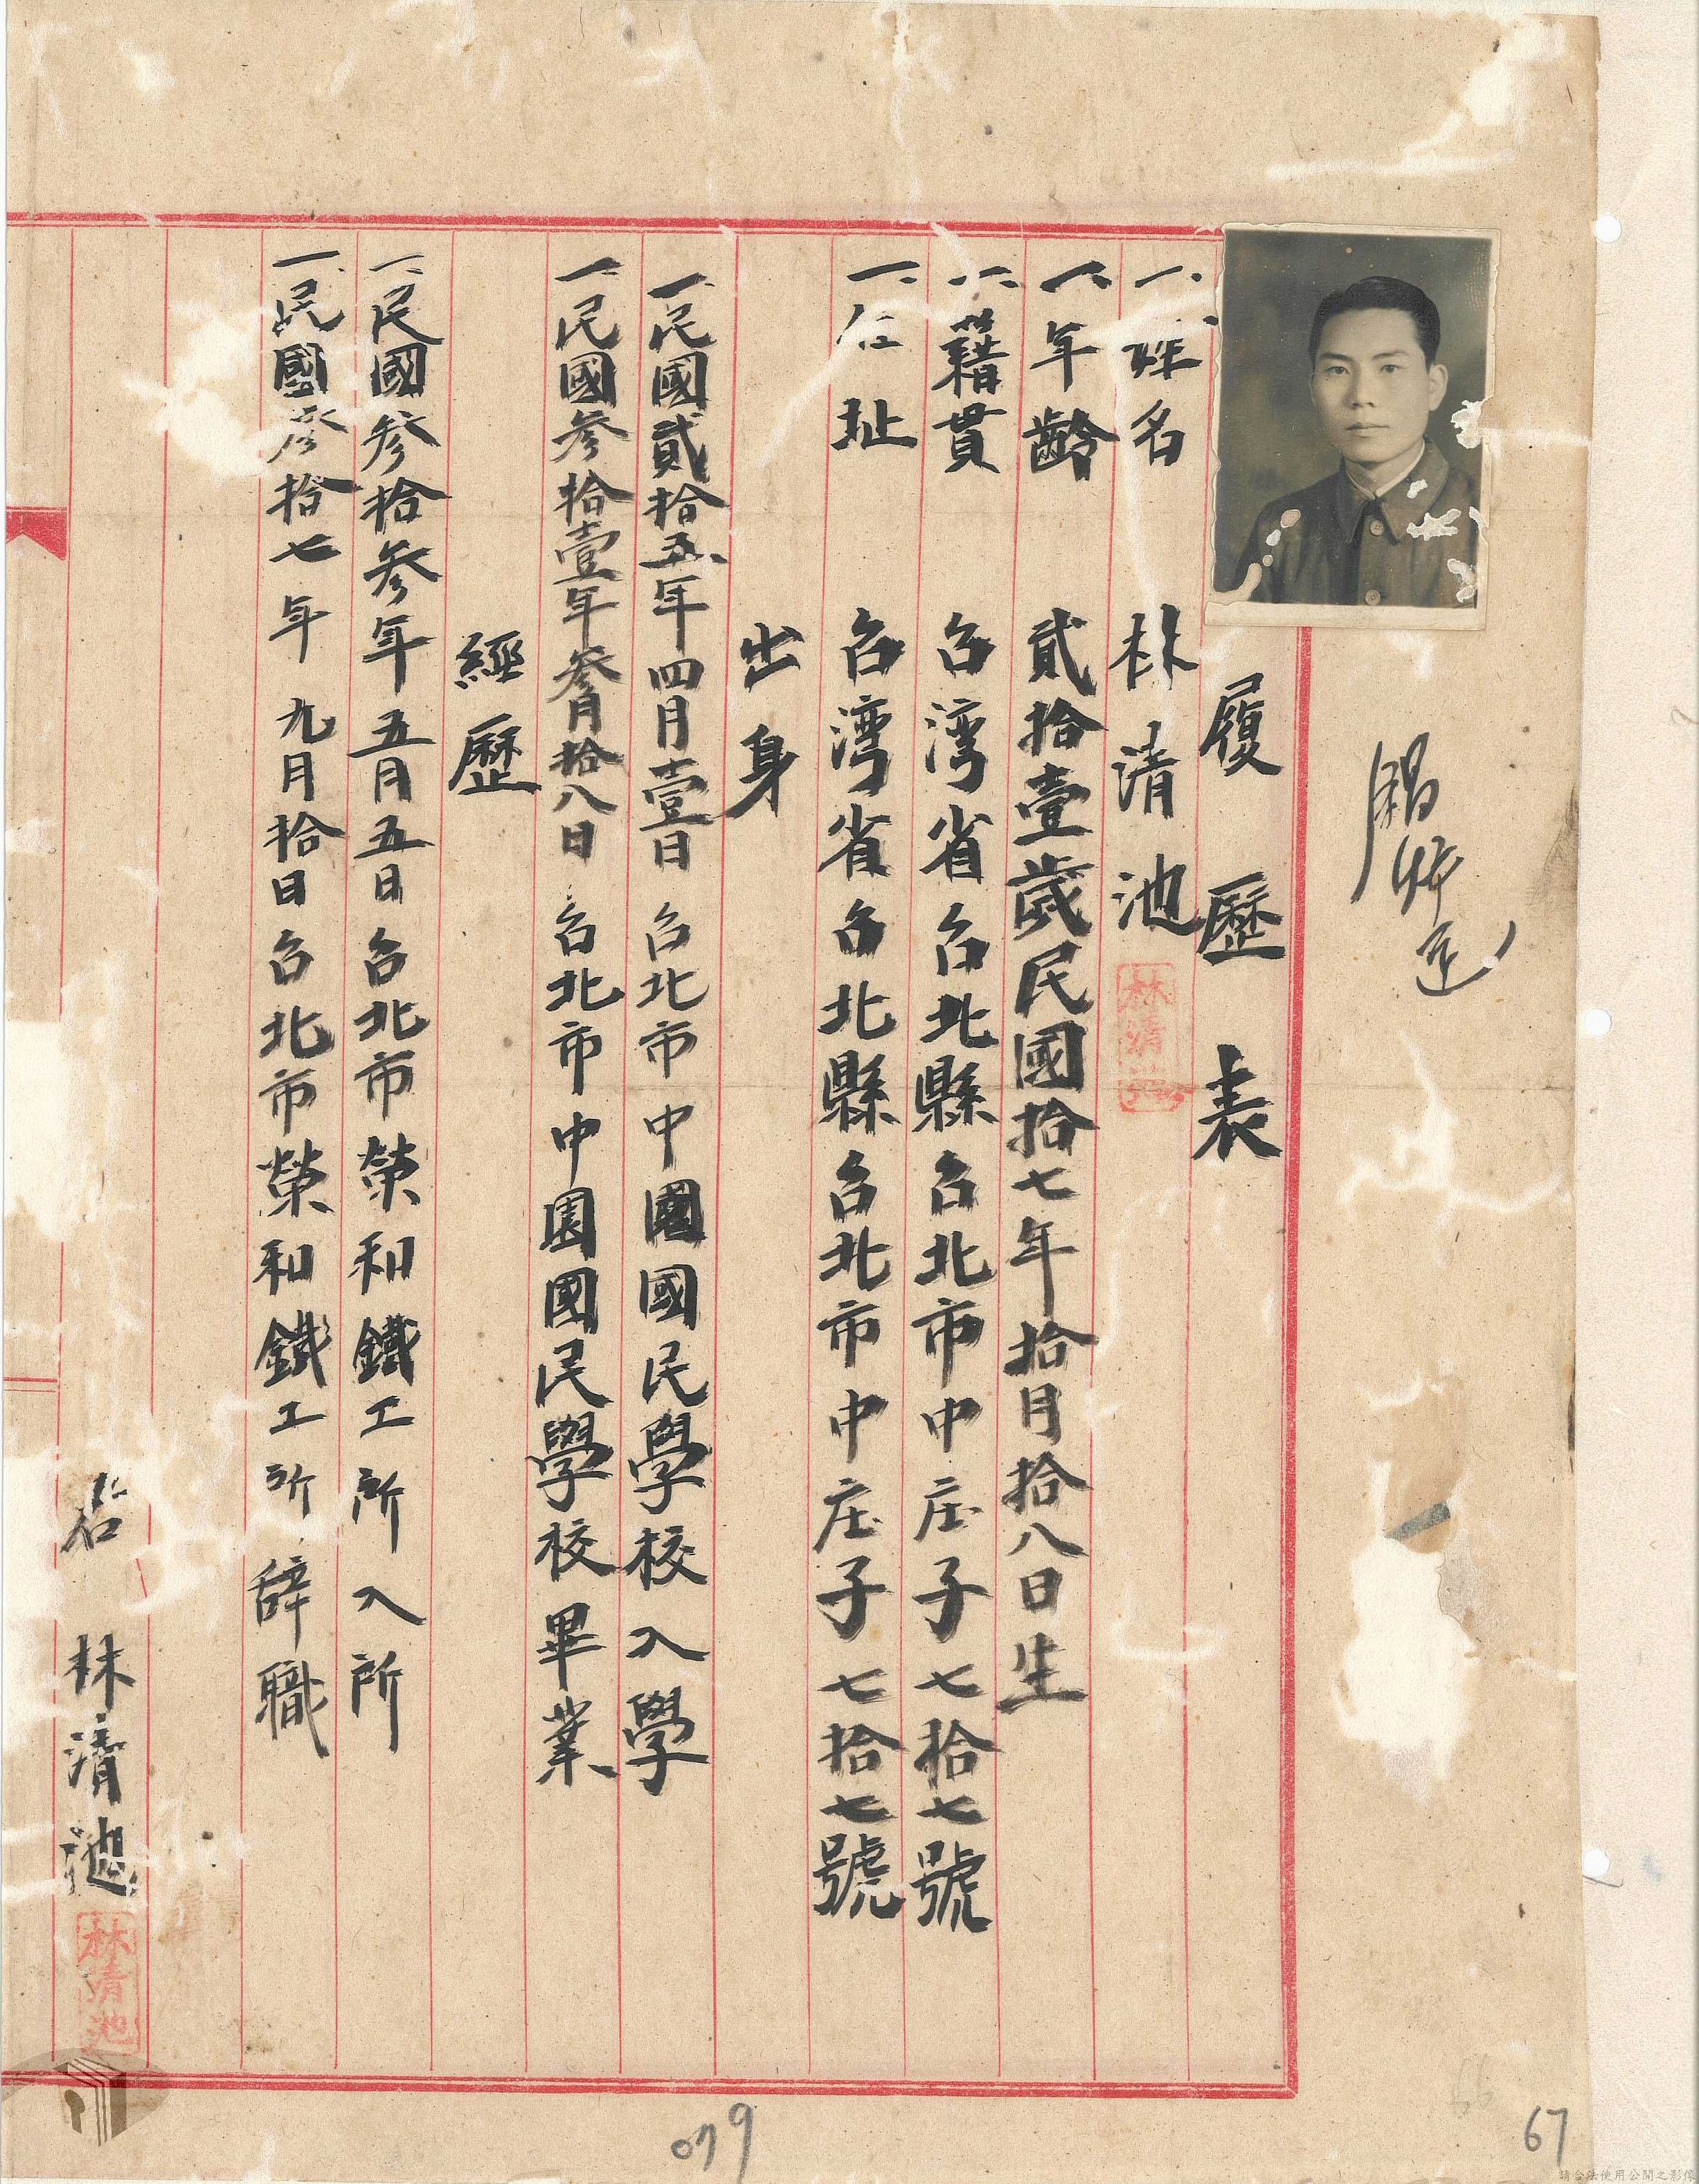 履歷表
一、姓名 林清池
林清池
一、年齡 貳拾壹歲民國拾七年拾月拾八日生
一、籍貫 台湾省台北縣台北市中庄子七拾七號
一、住址 台湾省台北縣台北市中庄子七拾七號
出身
一、民國貳拾五年四月壹日 台北市中國國民學校入學
一、民國參拾壹年參月拾八日 台北市中園國民學校畢業
經歷
一、民國參拾參年五月五日台北市榮和鐵工所入所
一、民國參拾七年九月拾日台北市榮和鐵工所辞職
林清池
林清池
079
66
67
請合法使用公開之影像